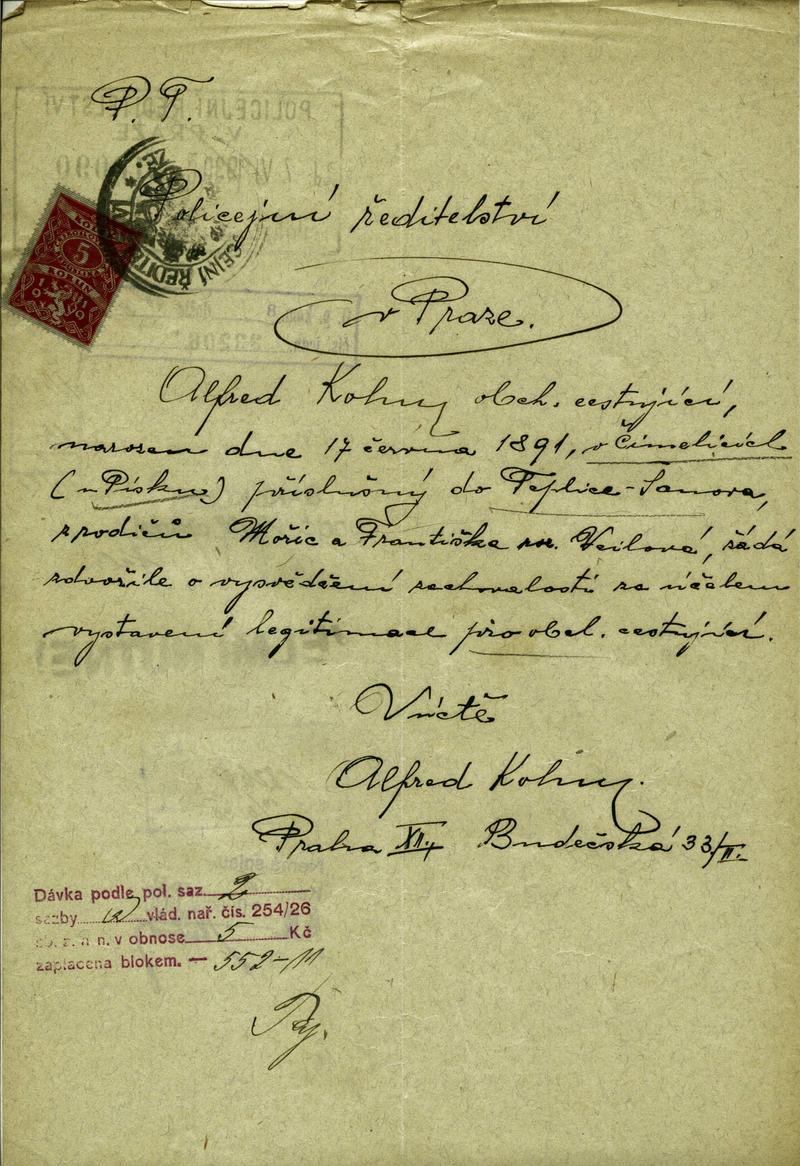 P. T.
Policejní ředitelství
v Praze.
5
KORUN
1919
Alfred Kohn obch. cestující,
narozen dne 17 června 1891, v Čimelicích
(u Písku) příslušný do Teplice-Šanova,
z rodičů Mořic a Františka roz. Weilová, žádá
zdvořile o vysvědčení zachovalosti za účelem
vystavení legitimace pro obch. cestující.
V úctě
Alfred Kohn.
Praha XII., Budečská 33/II.
Dávka podle pol. saz. 2
sazby a) vlád. nař. čís. 254/26
sb. z. a n. v obnose 5 Kč
zaplacena blokem. — 552-11